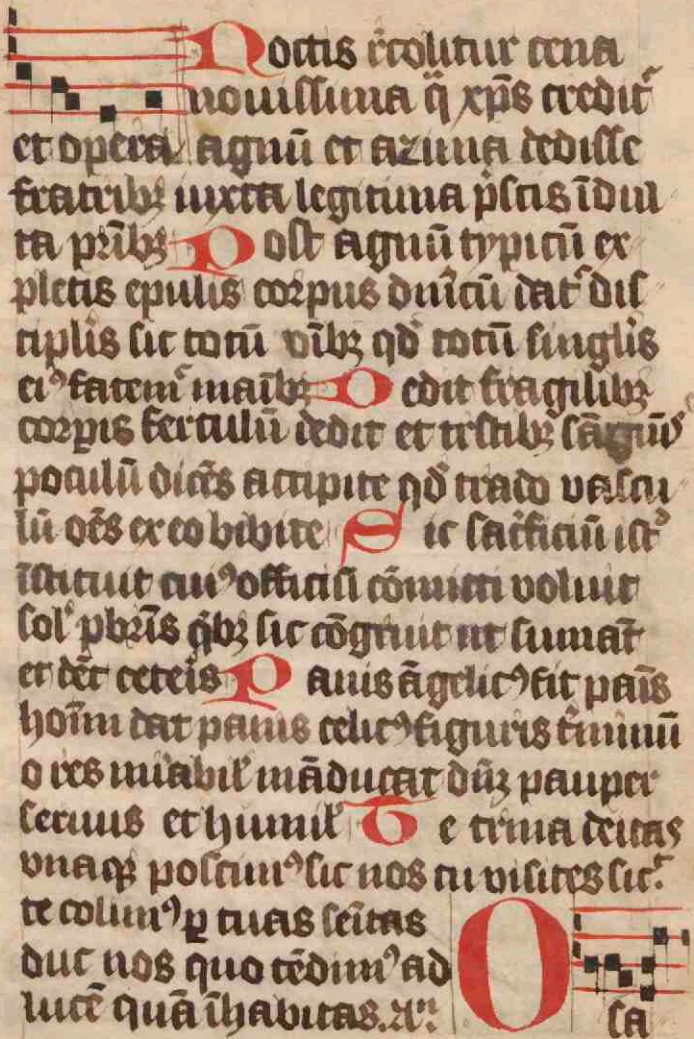 Noctis r̄colitur cena
nouissima q̄ xp̄s credit᷑
et opera agnū et azima dedisse
fratribꝫ iuxta legitima p̄scis īdul
ta pr̄ibꝫ Post agnū typicū ex
pletis epulis corpus dn̄icū dat᷑ dis
cipl̄is sic totū oīb̄ꝫ qd̄ totū singl̄is
eiꝰ fatem᷑ maībꝫ Dedit fragilibꝫ
corꝑis ferculū dedit et tr̄stibꝫ sāguīs
poculū dicēs accipite qd̄ trado vascu
lū oēs ex eo bibite Sic sac̄ficiū ist᷑
īstituit cuiꝰ officiū cōmitti voluit
sol᷑ pbr̄is q̄bꝫ sic cōgruit ut sumāt
et dēt ceteīs Panis āgelicꝰ fit pāis
hoīm dat panis celicꝰ figuris t̄minū
o res mīabil᷑ māducat dn̄ꝫ pauper
seruus et humil᷑ Te trina deitas
vnaqꝫ poscimꝰ sic nos tu visites sic᷑
te colimꝰ ꝑ tuas seītas
duc nos quo tēdimꝰ ad
lucē quā īhabitas. Aⁿ. O
sa